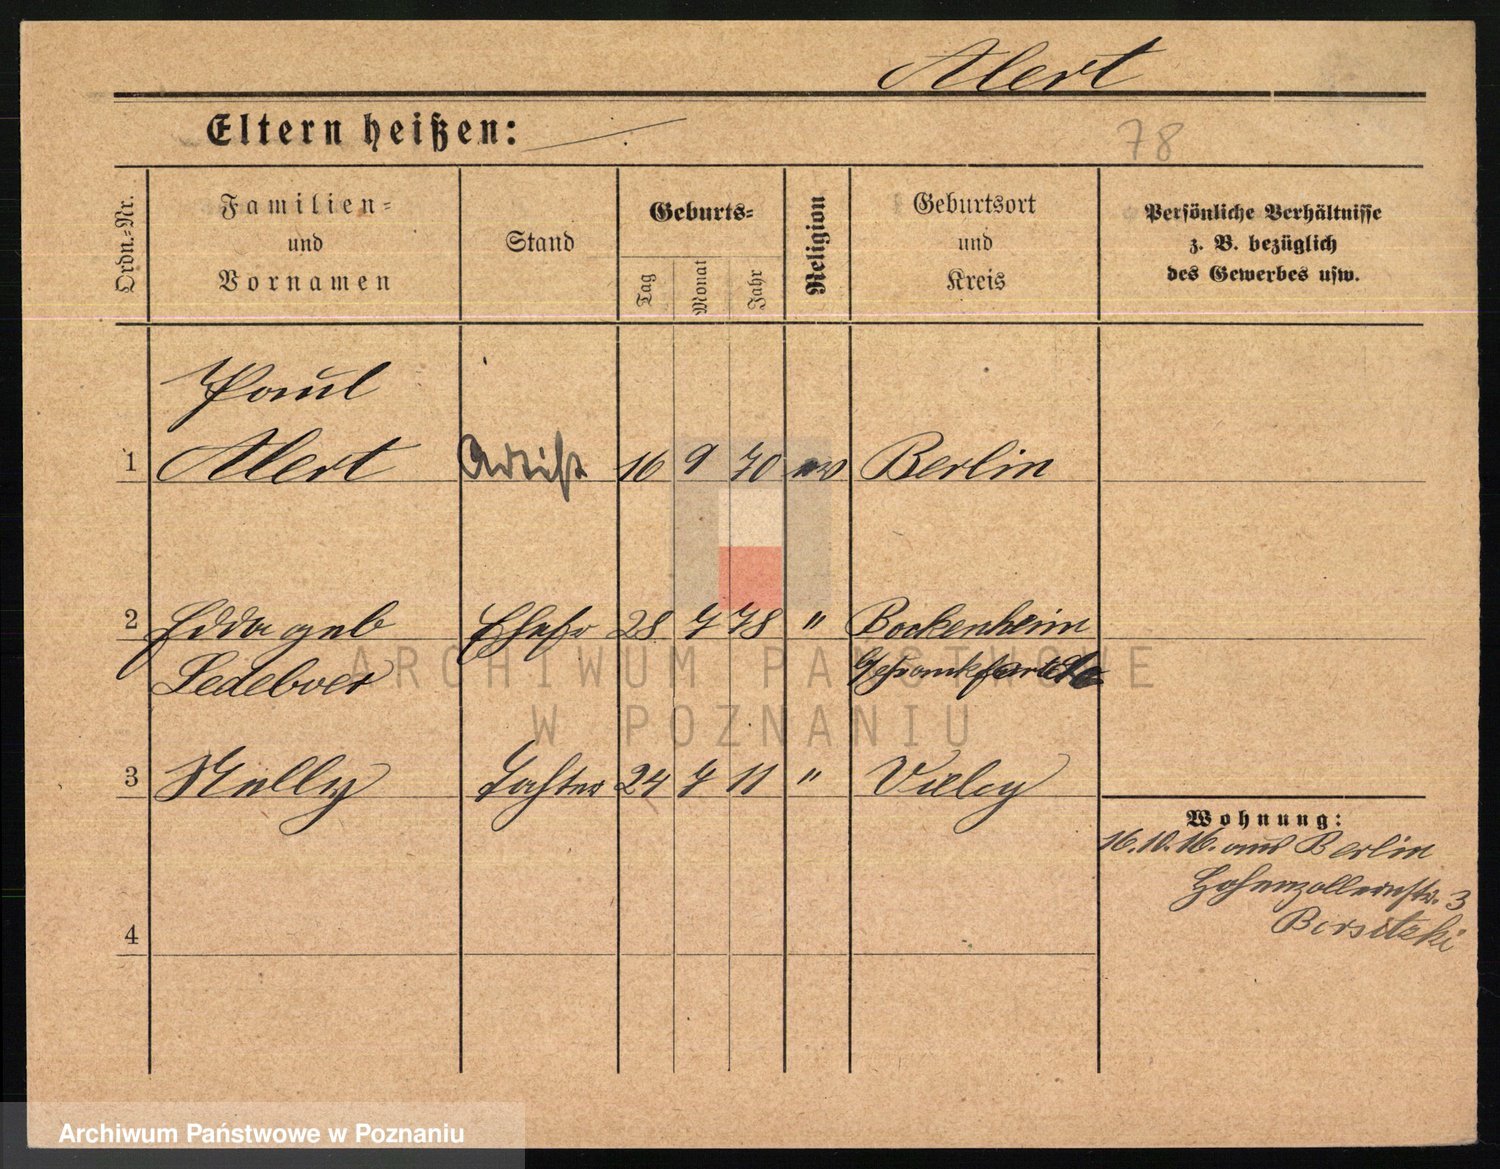 Alert
Eltern heißen:
78
Ordn.-Nr.
Familien-
und
Vornamen
Stand
Geburts-
Tag
Monat
Jahr
Religion
Geburtsort
und
Kreis
Persönliche Verhältnisse
z. B. bezüglich
des Gewerbes usw.
Paul
1 Alert Artist 16 9 70 ev Berlin
2 geb Ehefr 28 7 78 " Bockenheim
Ledeboer
3 Nelly Tochter 24 7 11 "
Wohnung:
16.10.16. aus Berlin
Hohenzollernstr. 3
4
ARCHIWUM PAŃSTWOWE
W POZNANIU
Archiwum Państwowe w Poznaniu